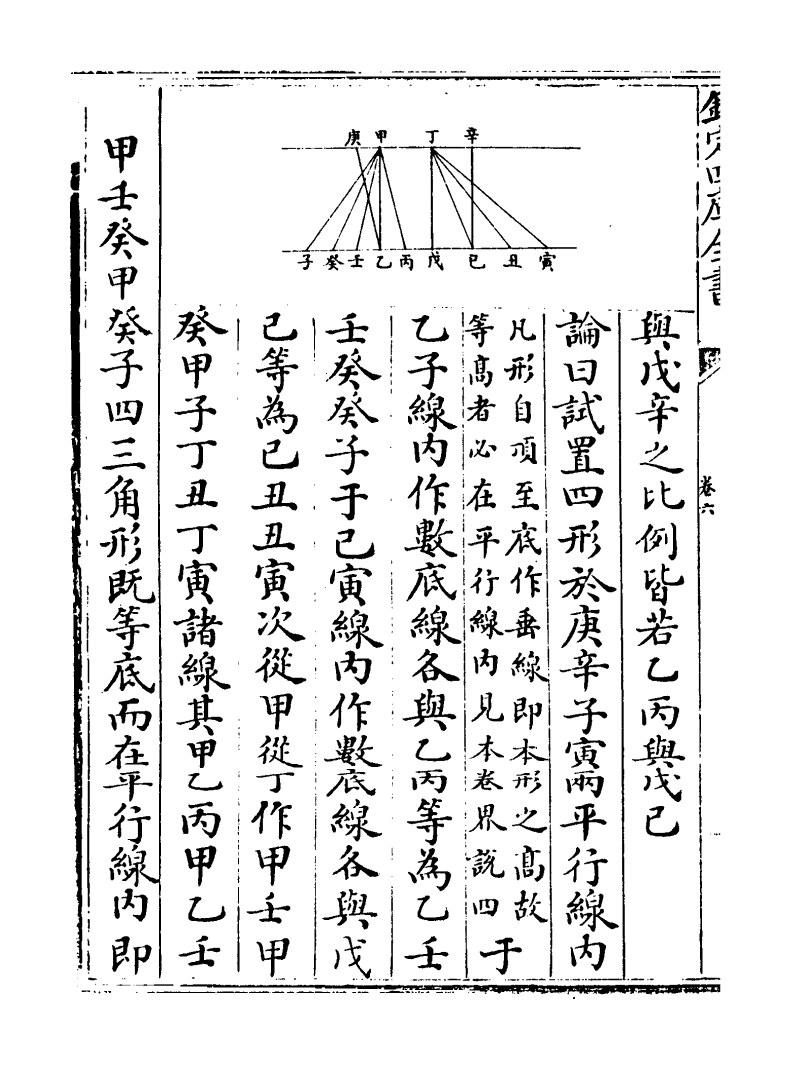 欽定四庫全書
卷六
庚甲丁辛
子癸壬乙丙戊己丑寅
與戊辛之比例皆若乙丙與戊己
論曰試置四形於庚辛子寅兩平行線內
凡形自頂至底作垂線即本形之高故
等高者必在平行線內見本卷界說四
于
乙子線內作數底線各與乙丙等為乙壬
壬癸癸子于己寅線內作數底線各與戊
己等為己丑丑寅次從甲從丁作甲壬甲
癸甲子丁丑丁寅諸線其甲乙丙甲乙壬
甲壬癸甲癸子四三角形既等底而在平行線內即